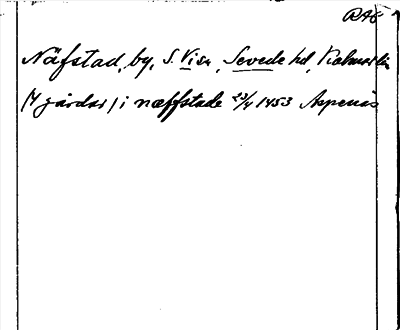 RAP
Näfstad, by, S. Vi sn, Sevede hd, Kalmar län
(4 gårdar) i næffstade 23/4 1453 Aspenäs